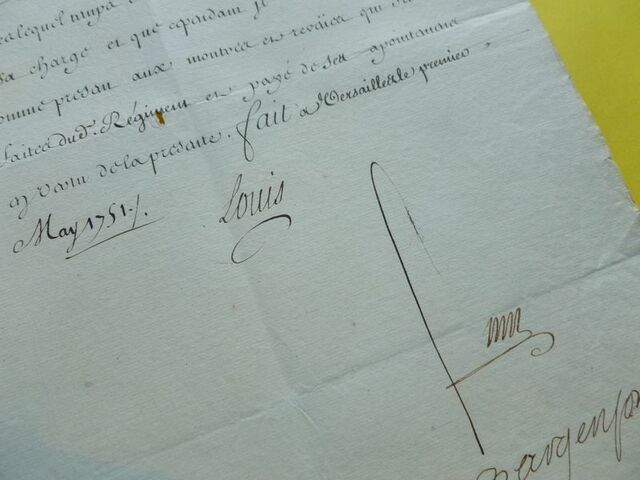 charge et que cependant je
comme presan aux montres et reveües qui
faites dud. Régiment et payé de ses apointemens
en vertu de la presante. fait a Versailles le premier
May 1751./.
Louis